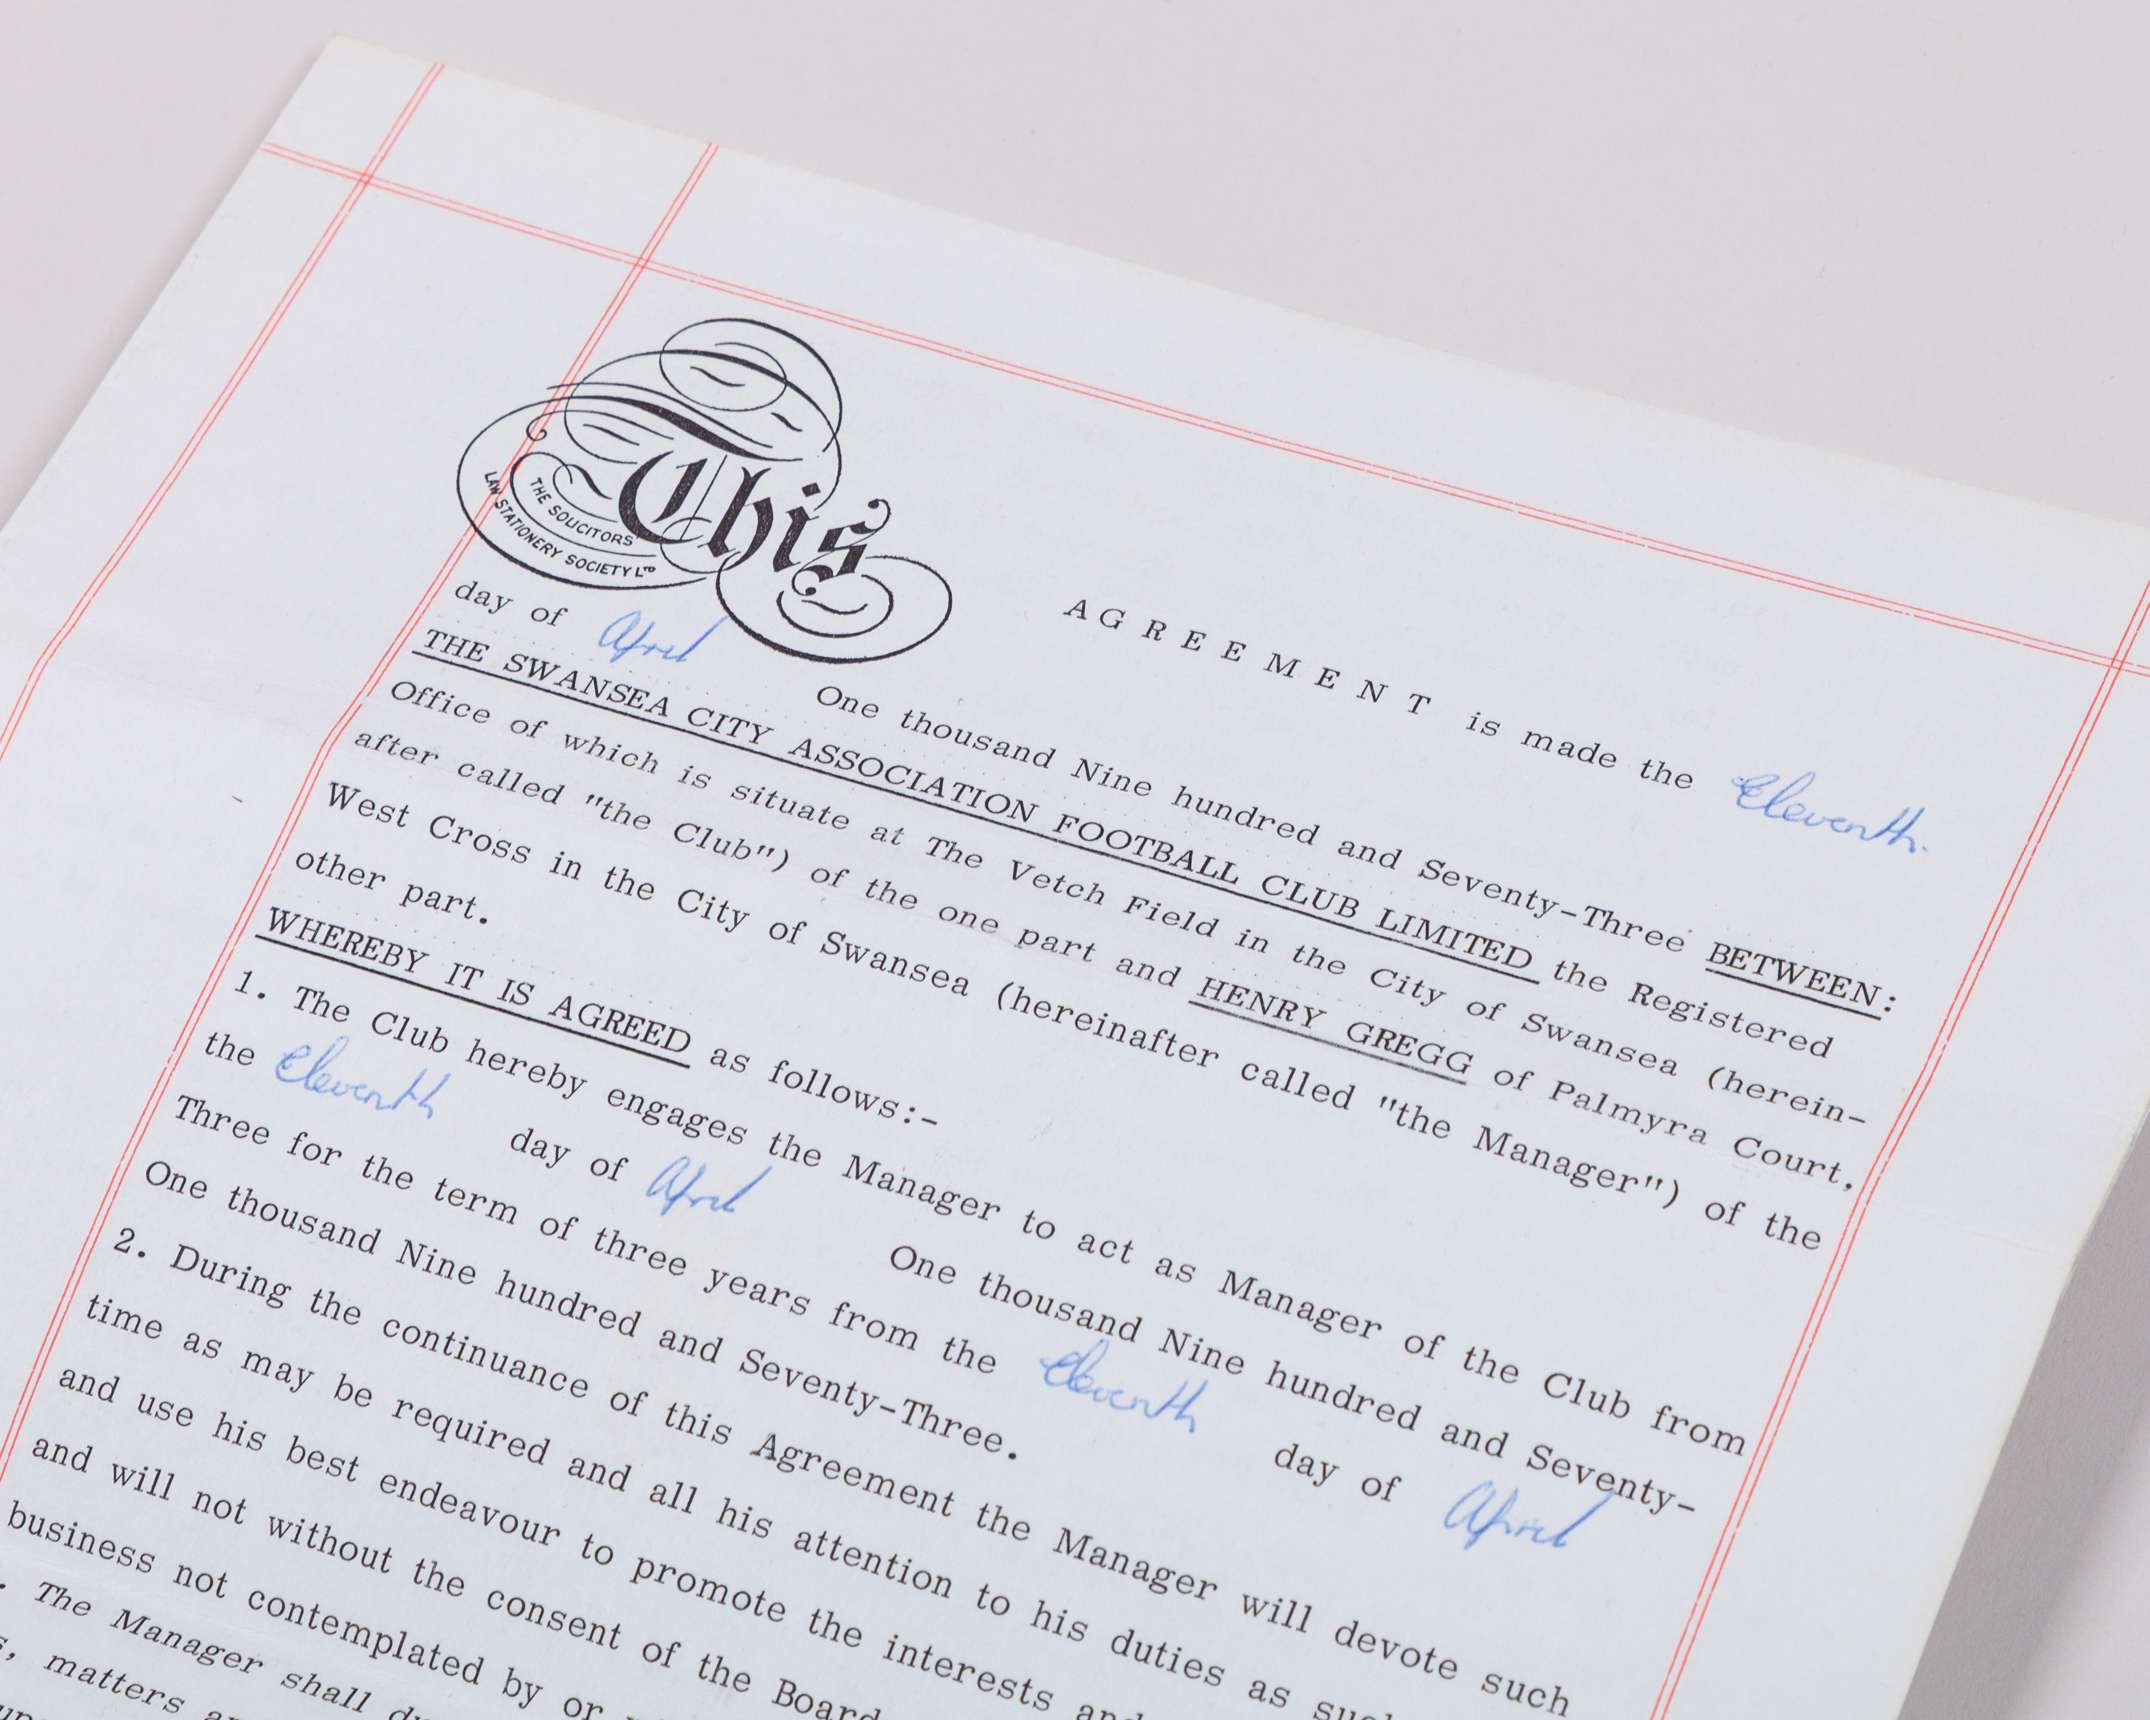 This AGREEMENT is made the Eleventh
THE SOLICITORS
LAW STATIONERY SOCIETY LTD
day of April One thousand Nine hundred and Seventy-Three BETWEEN:
THE SWANSEA CITY ASSOCIATION FOOTBALL CLUB LIMITED the Registered
Office of which is situate at The Vetch Field in the City of Swansea (herein-
after called "the Club") of the one part and HENRY GREGG of Palmyra Court,
West Cross in the City of Swansea (hereinafter called "the Manager") of the
other part.
WHEREBY IT IS AGREED as follows:-
1. The Club hereby engages the Manager to act as Manager of the Club from
the Eleventh day of April One thousand Nine hundred and Seventy-
Three for the term of three years from the Eleventh day of April
One thousand Nine hundred and Seventy-Three.
2. During the continuance of this Agreement the Manager will devote such
time as may be required and all his attention to his duties as such
and use his best endeavour to promote the interests and
and will not without the consent of the Board
business not contemplated by or
The Manager shall
matters